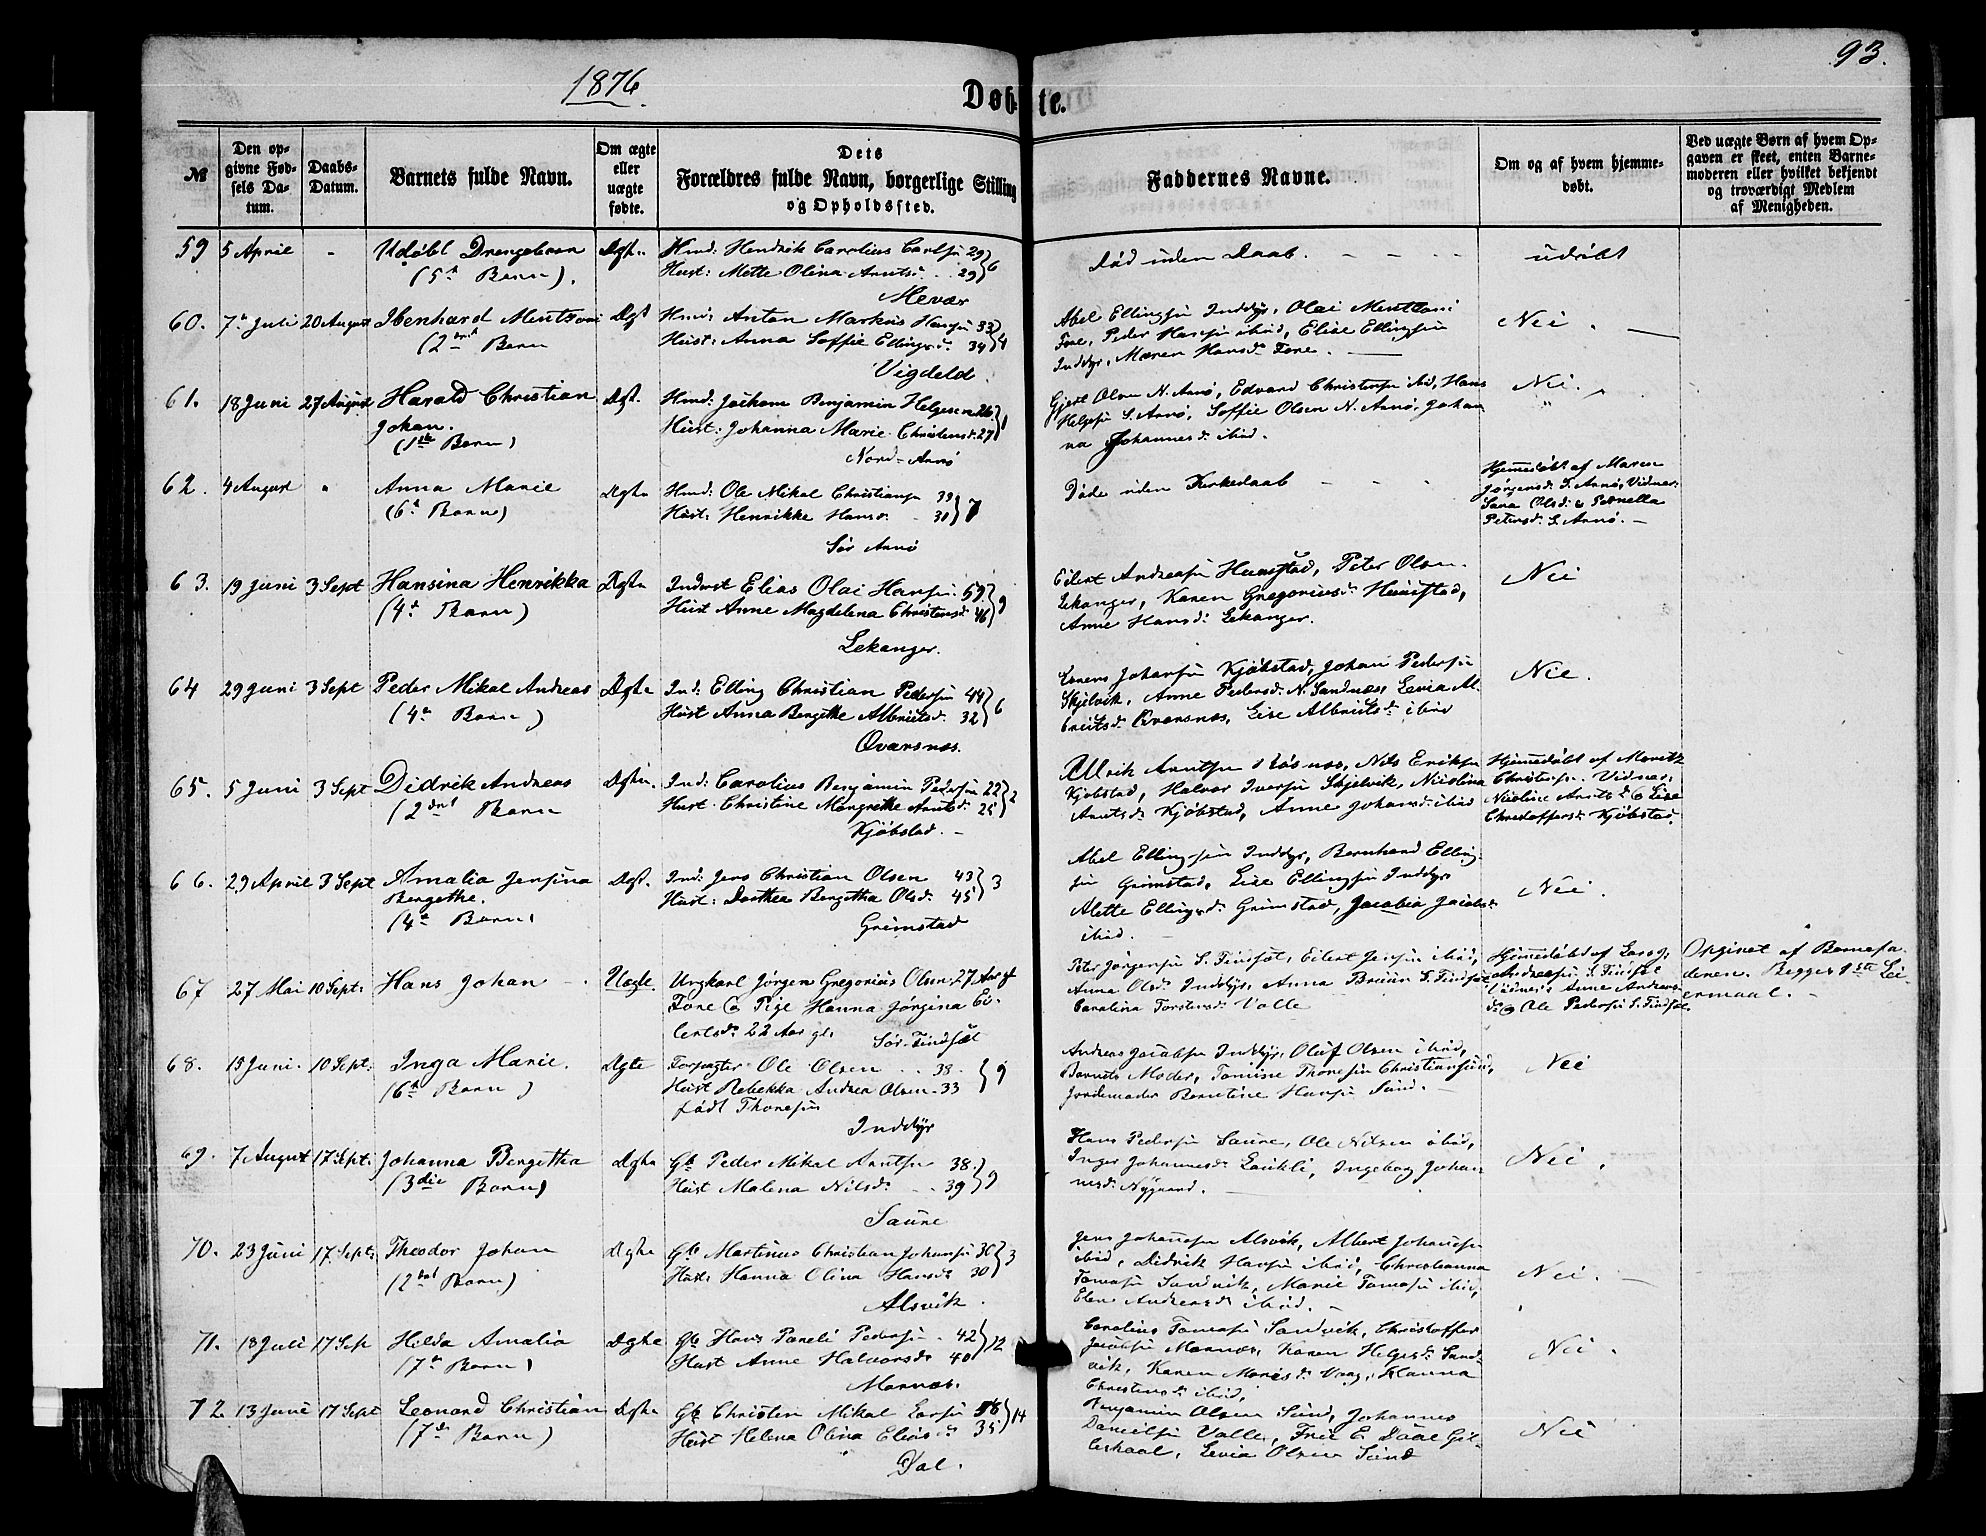 1876.
93.
Døbte.
№
Den op-
givne Fød-
sels Da-
tum.
Daabs-
Datum.
Barnets fulde Navn.
Om ægte
eller
uægte
fødte.
Dets
Forældres fulde Navn, borgerlige Stilling
og Opholdssted.
Faddernes Navne.
Om og af hvem hjemme-
døbt.
Ved uægte Børn af hvem Op-
gaven er skeet, enten Barne-
moderen eller hvilket bekjendt
og troværdigt Medlem
af Menigheden.
59 5 April - Udøbt Drengebarn Dgte Hmd: Hendrik Carolius Carlsn 29 6
(5t Barn). Hust: Mette Olina Arntsd. 29
Mevær
Død uden Daab. - - -
udøbt
60. 7de Juli 20 August Ibenhard Mentzoni Dgt Hmd: Anton Markus Hansn 33 4
(2det Barn Hust: Anna Soffie Ellingsd: 34
Vigdeld.
Abel Ellingsn Inddyr, Olai Mentzoni
Fore, Peder Hansn ibid, Elise Ellingsn
Inddyr, Maren Hansd: Fore. -
Nei.
61. 18 Juni 27 August Harald Christian Dgt. Hmd: Joakom Benjamin Helgesen 26 1
Johan. Hust: Johanna Marie Christensd: 27
(1ste Barn) Nord-Arnø
Gjert Olsen N. Arnø, Edvard Christensn ibid, Hans
Helgesn S. Arnø, Soffie Olsen N. Arnø, Johan
na Johannesd: ibid.
Nei.
62. 4 August " Anna Marie Dgte Hmd: Ole Mikal Christiansn 39 7
(6t Barn) Hust: Henrikke Hansd. - 30
Sør Arnø
Døde uden Kirkedaab - - -
Hjemmedøbt af Maren
Jørgensd: S. Arnø, Vidner:
Sara Olsd: & Pernella
Petersd: S. Arnø. -
63. 19 Juni 3 Sept Hansina Henrikka Dgte Inderst Elias Olai Hansn. 59 9
(4t Barn) Hust Anne Magdelena Christensd: 46
Lekanger.
Eilert Andreasn Hunstad, Peter Olsen
Lekanger, Karen Gregoriusd: Hunstad,
Anne Hansd: Lekanger.
Nei
64 29 Juni 3 Sept Peder Mikal Andreas Dgte Ind: Elling Christian Pedersn 44 6
(4de Barn) Hust Anna Bergitte Albrigtsd. 32
Qvarsnes.
Johansn Kjøbstad, Johan Pedersn
Skjelvik, Anne Pedersd: N. Sandnes, Levia Al-
breitsd: Qvarsnes, Lise Albrietsd: ibid
Nei.
65. 5 Juni 3 Sept Didrik Andreas Dgte. Ind: Carolius Benjamin Pedersn 22 2
(2det Barn Hust: Christine Margrethe Arntsd: 25
Kjøbstad. -
Ulrik Arntsn Røsnes, Nils Eriksn
Kjøbstad, Halvor Iversn Skjelvik, Nicolina
Arntsd: Kjøbstad, Anne Johansd: ibid
Hjemmedøbt af Moritz
Christensn. Vidner,
Nicoline Arntsd: & Lise
Christoffersd: Kjøbstad.
66. 29 April 3 Sept Amalia Jensina Dgt. Ind: Jens Christian Olsen 43 3
Bergethe. Hust: Dorthea Bergitha Olsd: 45
(4de Barn) Grimstad
Abel Ellingsn Inddyr, Bernhard Elling-
sn Grimstad, Lise Ellingsn Inddyr
Alette Ellingsd: Grimstad, Jacobia Jacobsd:
ibid.
Nei.
67 27 Mai 10 Sept: Hans Johan - Uægte. Ungkarl Jørgen Gregorius Olsen 27 Aar gl
Fore & Pige Hanna Jørgina Ei-
lertsd: 22 Aar gl. Sør-Findset
Peter Jørgensn S. Findset, Eilert Jensn ibid,
Anna Olsd: Inddyr, Anna Bruun S. Findset
Carolina Torstensd: Valle
Hjemmedøbt af
Andreasn S. Findset
Vidner: Anne Andreas-
d: & Ole Pedersn S. Findset.
Opgivet af Barnefa-
deren. Begges 1ste Lei
ermaal. -
68. 15 Juni. 10 Sept: Inga Marie. Dgte Forpagter Ole Olsen . . 38. 9
(6te Barn) Hust Rebekka Andrea Olsen 33
født Thonesn
Inddyr
Andreas Jacobsn Inddyr, Oluf Olsen ibid,
Barnets Moder, Tomine Thonesn Christiansund,
Jordemoder Berntine Hansn Sund. -
Nei
69. 7 August 17 Sept: Johanna Bergetha Dgte Gb Peder Mikal Arntsn 38. 9
(3die Barn) Hust Malena Nilsd: . . 39
Saure
Hans Pedersn Saure, Ole Nilsen ibid,
Inger Johannesd: Laukli, Ingeborg Johan
nesd: Nygaard. -
Nei.
70. 23 Juni 17 Sept: Theodor Johan Dgte Gb: Martinus Christian Johansn 30 3
(2det Barn) Hust: Hanna Olina Hansd: 30
Alsvik.
Jens Johansn Alsvik, Albert Johansn
ibid, Didrik Hansn ibid, Christianna
Tomasn Sandvik, Marie Tomasn ibid,
Elen Andreasd: ibid. -
Nei. -
71. 18 Juli 17 Sep Hilda Amalia Dgte Gb Hans Pareli Pedersn. 42 12
(7de Barn) Hust Anne Halvorsd: 40
Marnæs.
Carolius Tomasn Sandvik, Christoffer
Jacobsn Marnæs, Karen Helgesd: Sand-
vik, Karen Marisd: Vaag, Hanna
Christensd: ibid,
Nei.
72 13 Juni 17 Sept Leonard Christian Dgte Gb Christen Mikal Larsn 14
(7de Barn) Hust Helena Olina Eliasd: 35
Dal.
Benjamin Olsen Sund, Johannes
Danielsn Valle, Frie E. Daae Gil-
leskaal, Levia Olsen Sund
Nei